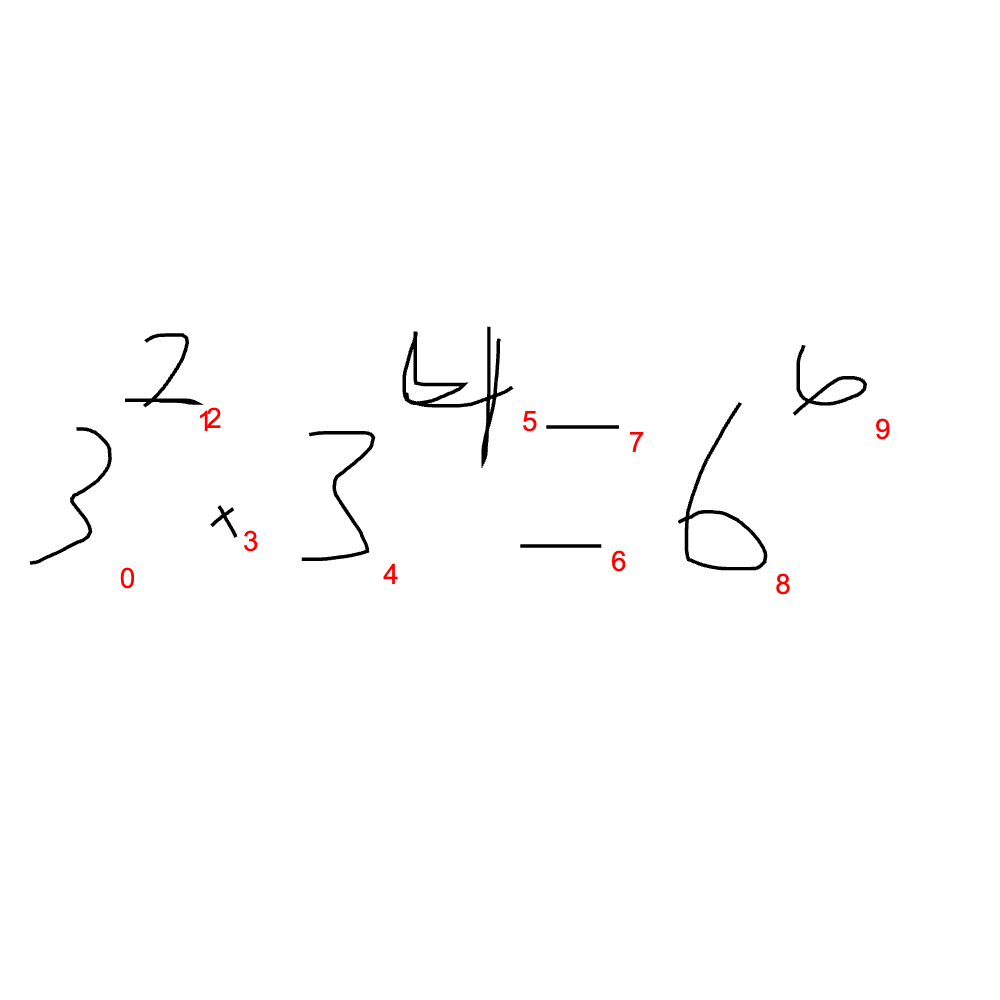 3² × 3⁴ = 6⁶
0 1 2 3 4 5 6 7 8 9